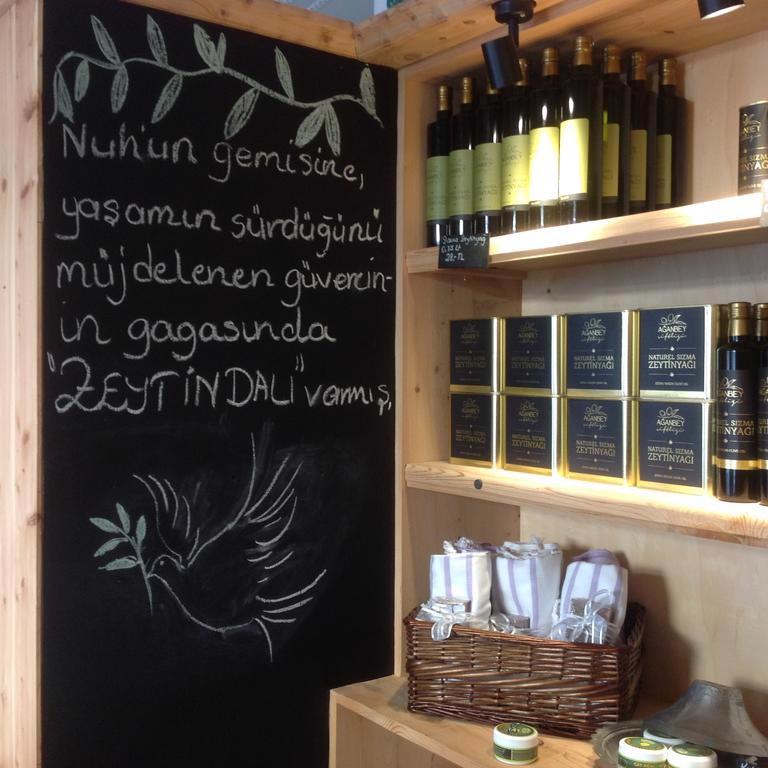 Nuh'un gemisine,
yaşamın sürdüğünü
müjdelenen güvercin-
in gagasında
"ZEYTİN DALI" varmış,
28.-TL
AĞANBEY
AĞANBEY
çiftliği
NATUREL SIZMA
ZEYTİNYAĞI
AĞANBEY
çiftliği
NATUREL SIZMA
ZEYTİNYAĞI
AĞANBEY
çiftliği
NATUREL SIZMA
ZEYTİNYAĞI
AĞANBEY
çiftliği
NATUREL SIZMA
ZEYTİNYAĞI
AĞANBEY
çiftliği
NATUREL SIZMA
ZEYTİNYAĞI
AĞANBEY
çiftliği
NATUREL SIZMA
ZEYTİNYAĞI
AĞANBEY
çiftliği
NATUREL SIZMA
ZEYTİNYAĞI
AĞANBEY
çiftliği
NATUREL SIZMA
ZEYTİNYAĞI